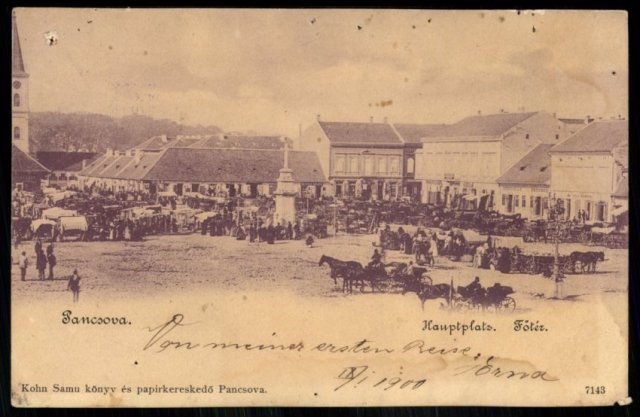 Pancsova.
Hauptplatz. Főtér.
Von meiner ersten Reise.
Erna
1/I 1900
Kohn Samu könyv és papirkereskedő Pancsova.
7143